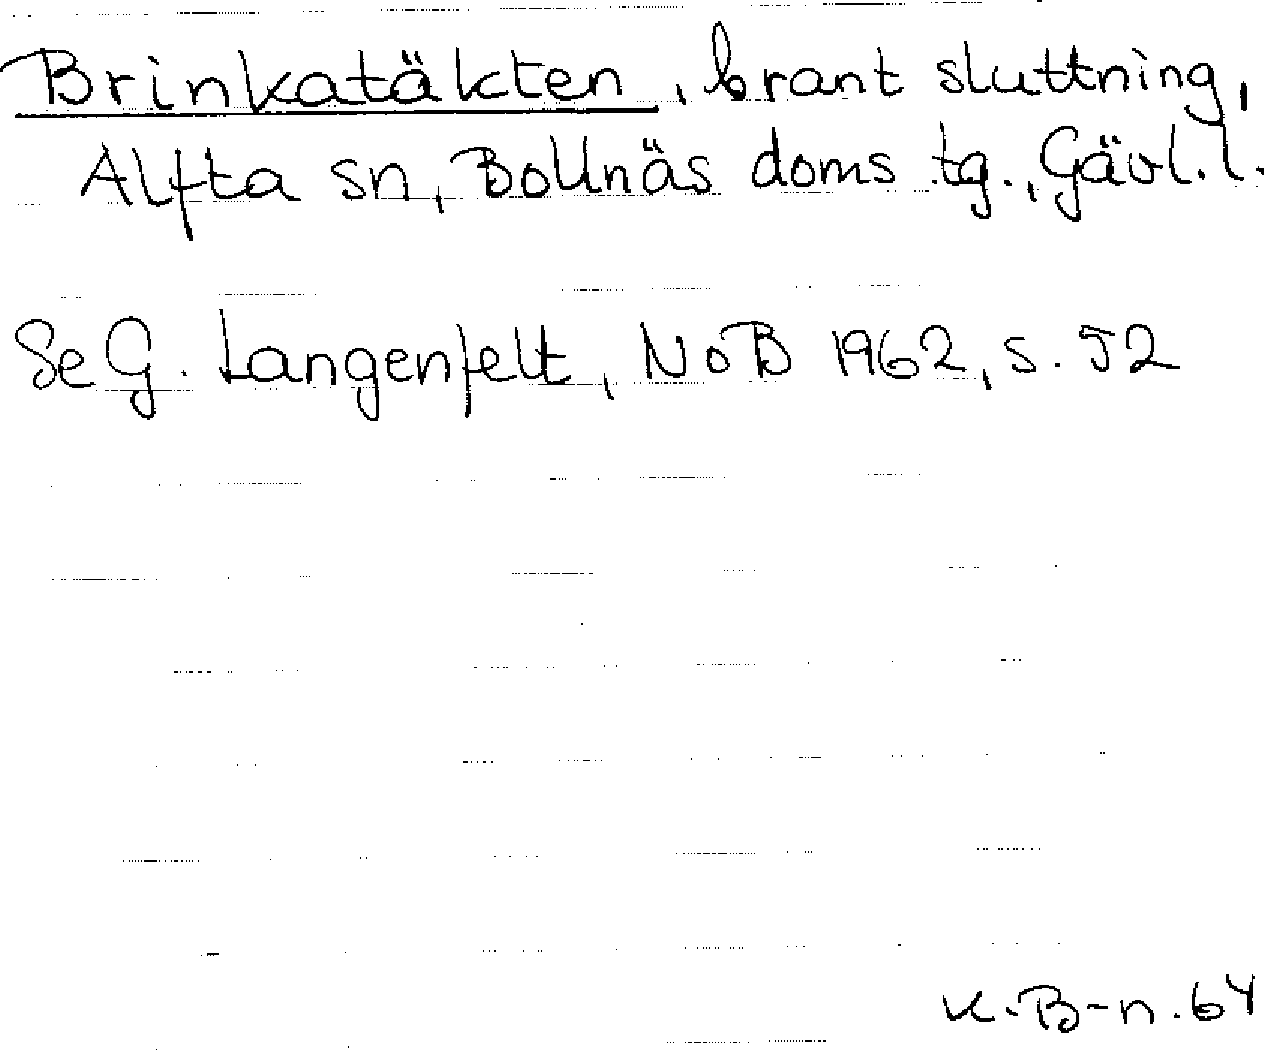 Brinkatäkten, brant sluttning,
Alfta sn, Bollnäs doms tg., Gävl. l.
Se G. Langenfelt, NoB 1962, s. 52
K. B-n. 64